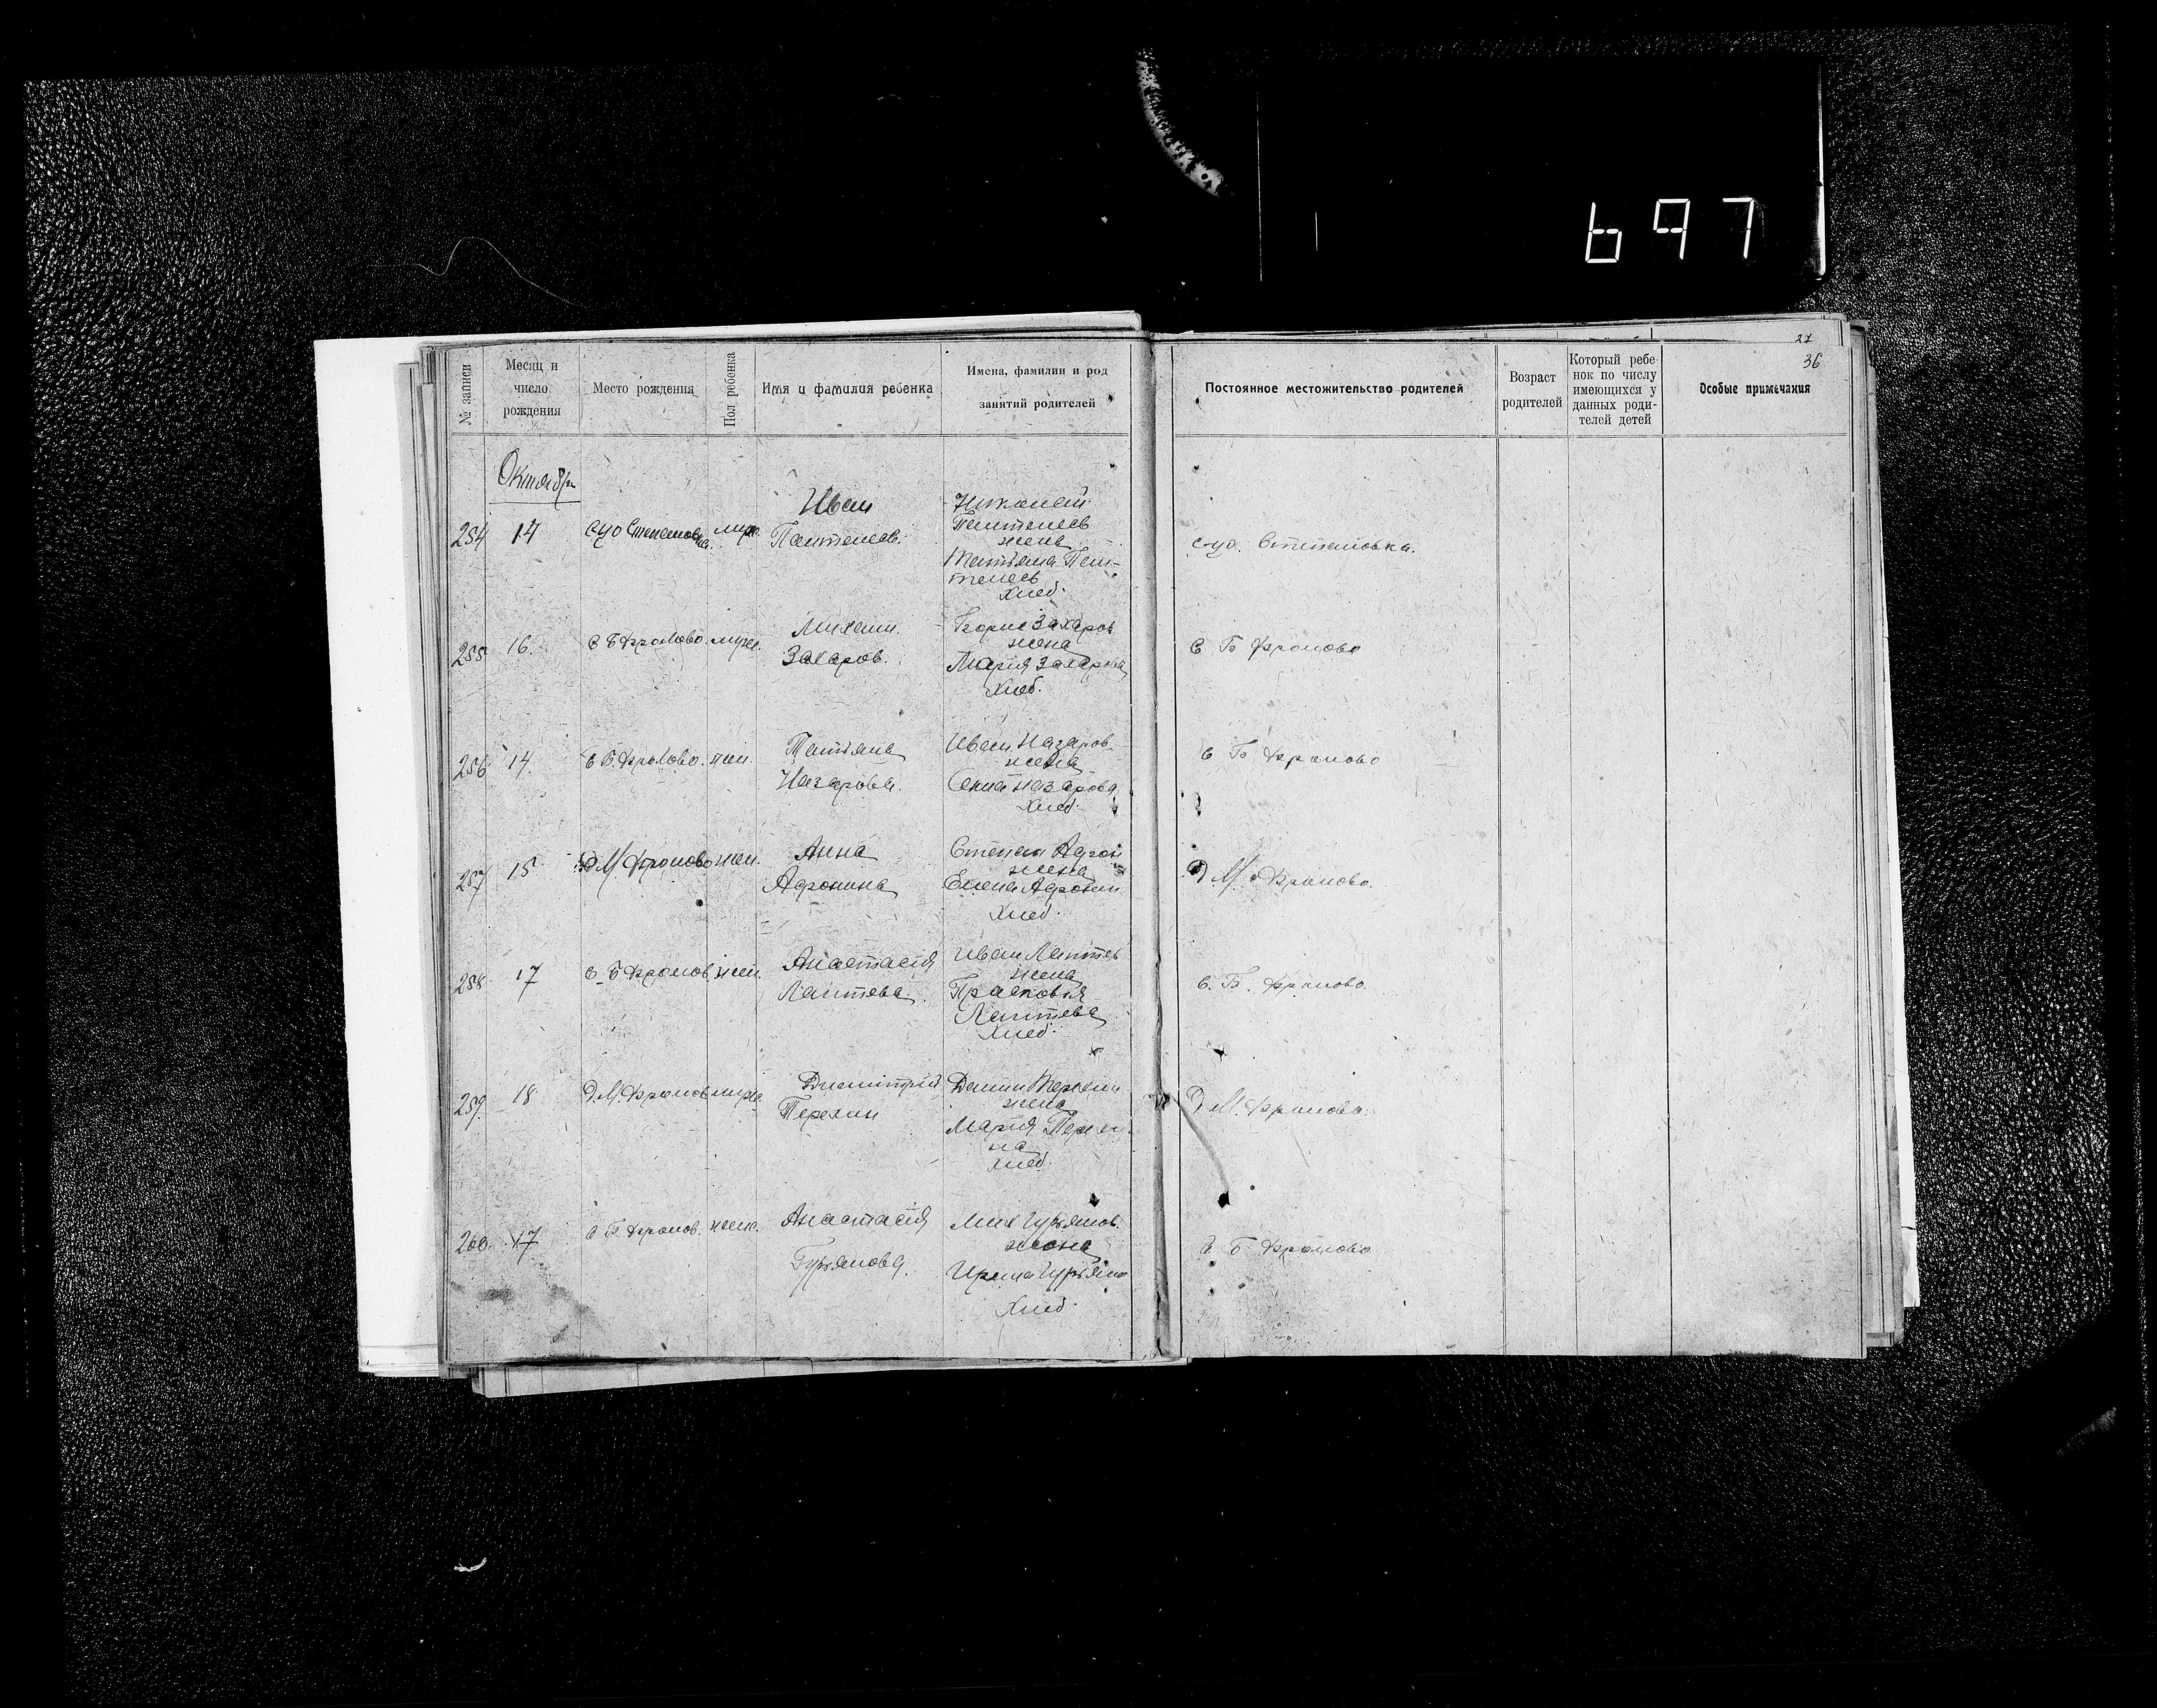 697
27
36
№ записи
Месяц и
число
рождения
Место рождения
Пол ребенка
Имя и фамилия ребенка
Имена, фамилии и род
занятий родителей
Постоянное местожительство родителей
Возраст
родителей
Который ребе-
нок по числу
имеющихся у
данных роди-
телей детей
Особые примечания
Октябрь
254 14
муж.
Иван
Пантелеев.
Николай
Пантелеев
жена
Татьяна Пан-
телеев
хлеб.
Степановка.
255 16. С Б Фролово. муж.
Михаил.
Захаров.
Борис Захаров
жена
Мария Захарова
Хлеб.
С Б Фролово
256 14. С Б. Фролово. жен.
Татьяна
Назарова.
Иван Назаров.
жена
Назарова
Хлеб.
С Б Фролово
257 15 Д М. Фролово жен.
Анна
Афонина
Степан Афон
жена
Елена Афонин
Хлеб.
Д М. Фролово.
258 17 С Б Фролов. жен.
Анастасія
Лаптева
Иван Лаптев
жена
Прасковья
Лаптева
Хлеб.
С. Б. Фролово.
259 18 Д. М. Фролов муж.
Димитрій
Терехин
Терехин
жена
Мария Терехи-
на
хлеб.
Д М. Фролово.
260. 17 С Б Фролов. жен.
Анастасія
Гурьянова.
Мих Гурьянов.
жена
Ирина Гурьяно
Хлеб.
С Б. Фролово